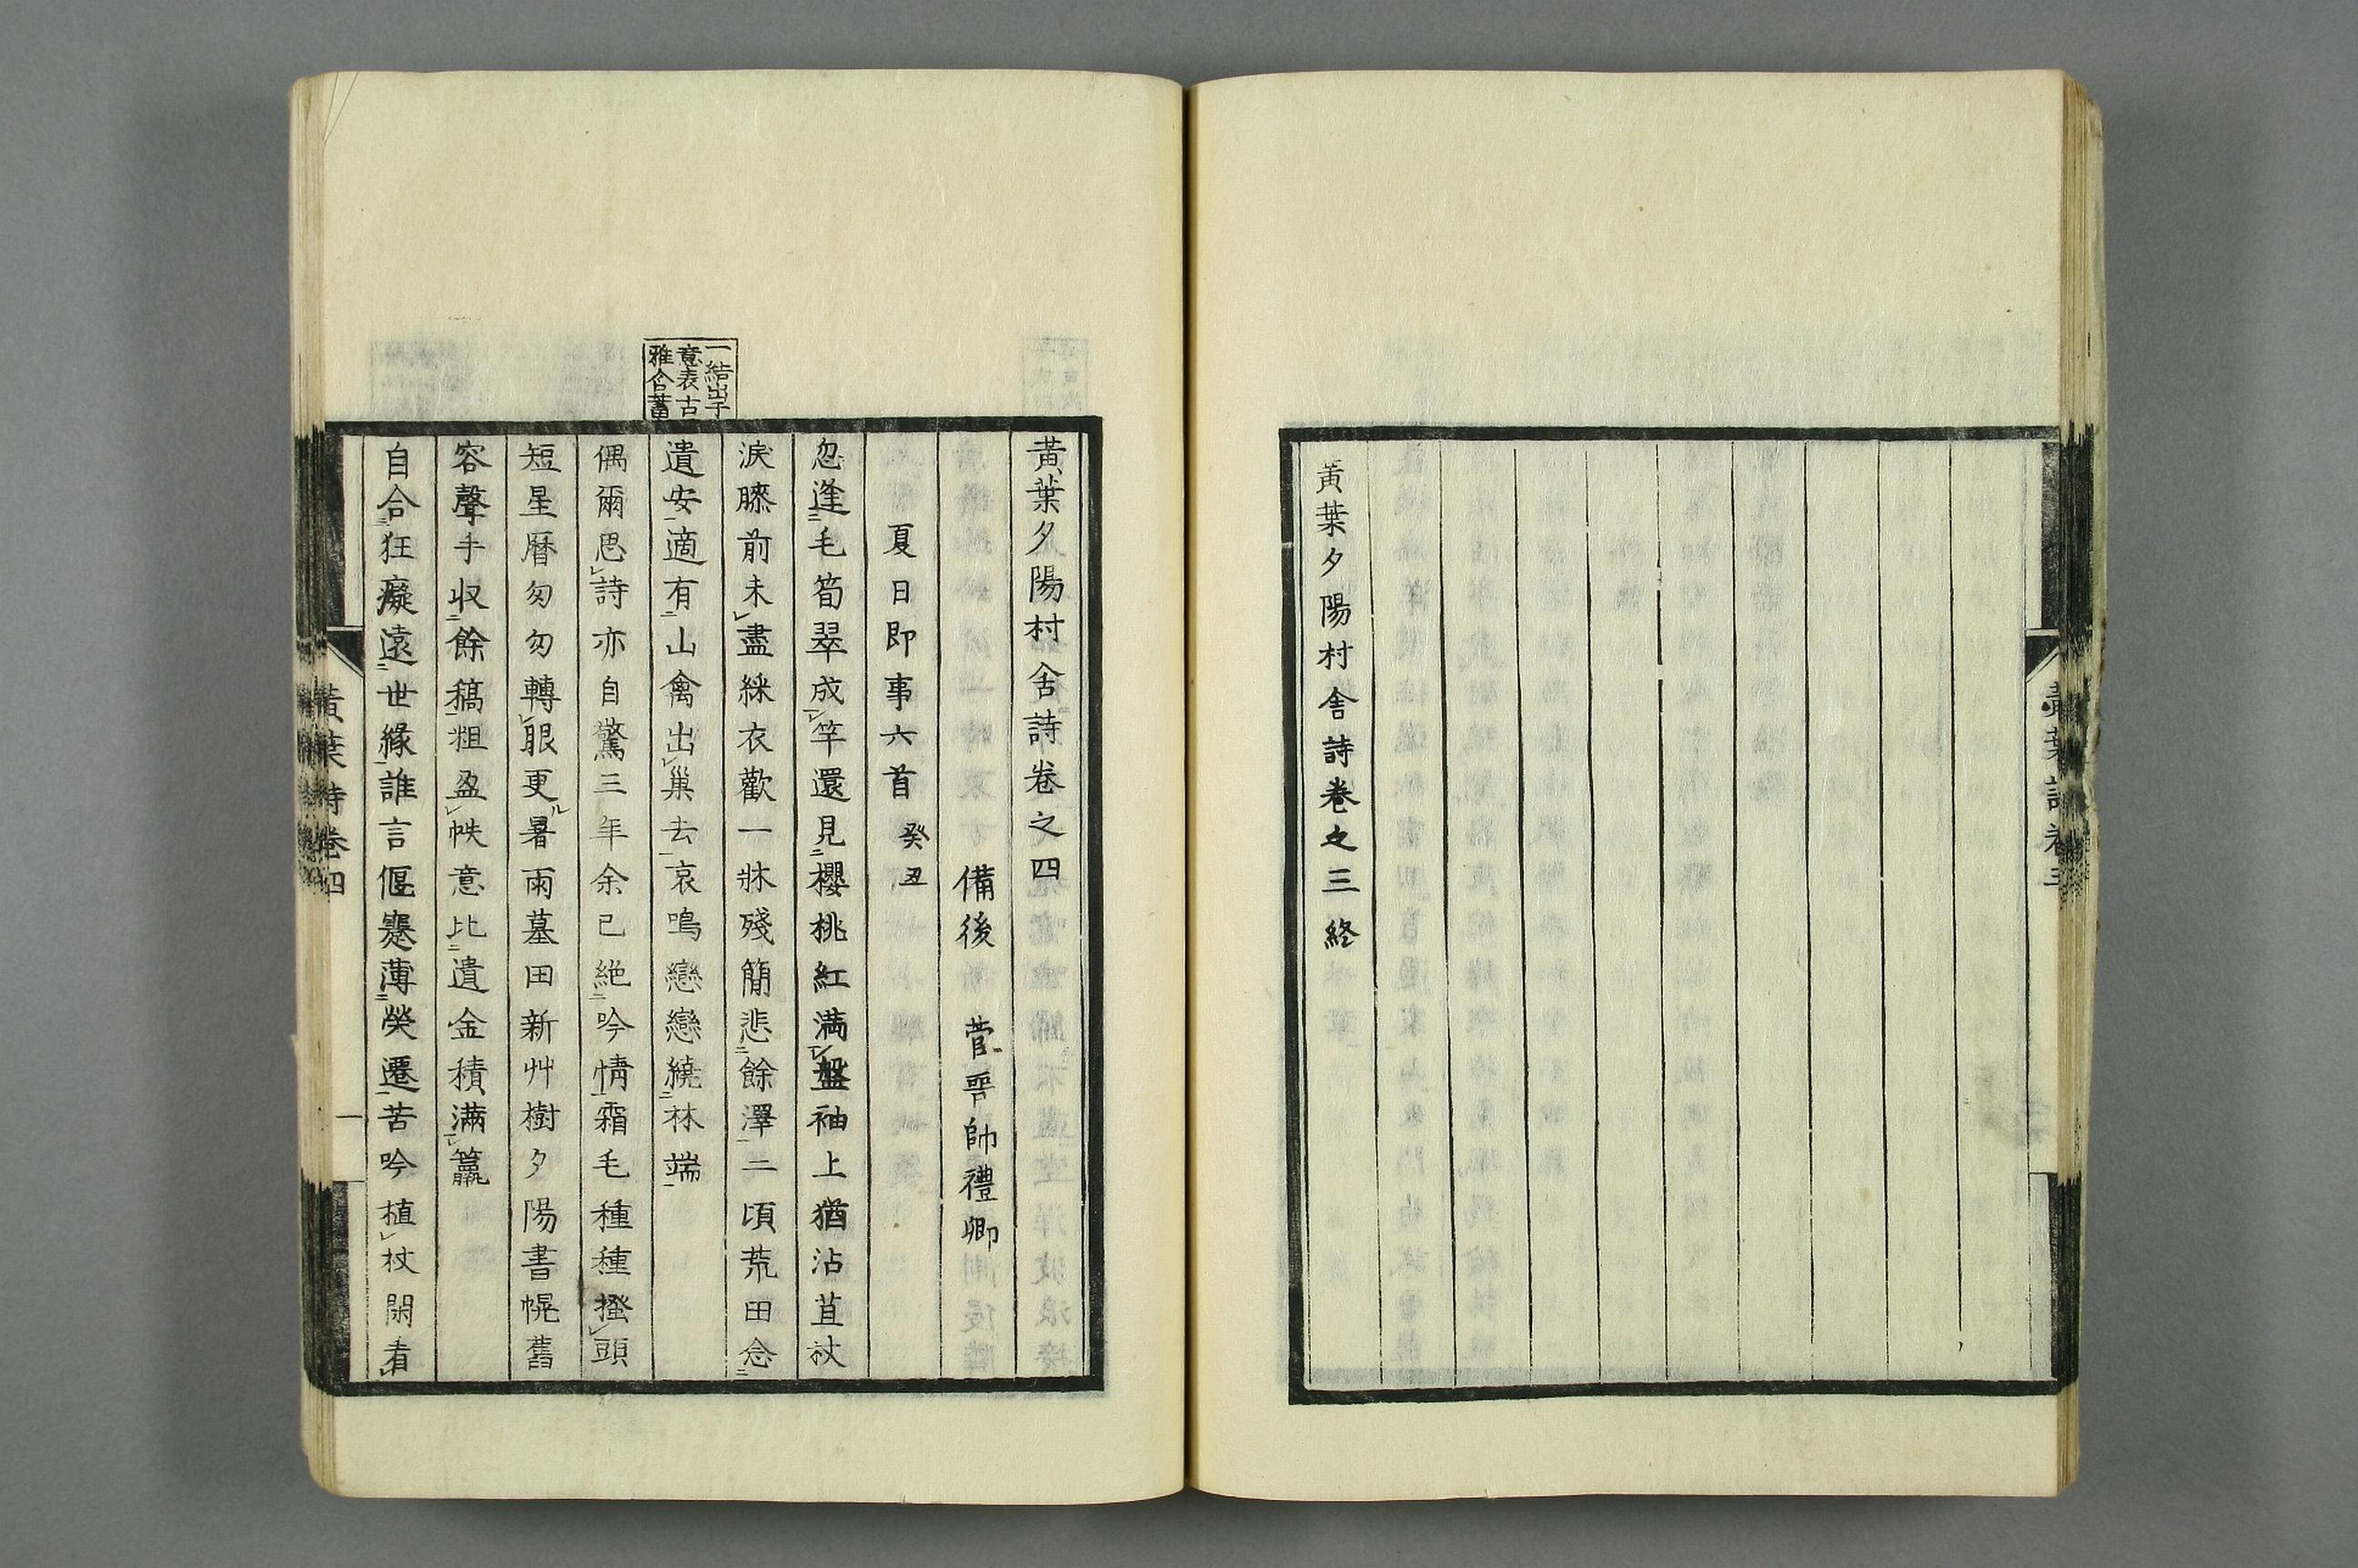 黃葉夕陽村舍詩卷之三終
黃葉夕陽村舍詩卷之四
備後 菅晉帥禮卿
夏日即事六首 癸丑
忽逢毛筍翠成竿還見櫻桃紅滿盤袖上猶沾苴杖
淚膝前未盡綵衣歡一牀殘簡悲餘澤二頃荒田念
遺安適有山禽出巢去哀鳴戀戀繞林端
偶爾思詩亦自驚三年余已絕吟情霜毛種種搔頭
短星曆匆匆轉眼更暑雨墓田新艸樹夕陽書幌舊
容聲手収餘稿粗盈帙意比遺金積滿籯
自合狂癡遠世緣誰言偃蹇薄榮遷苦吟植杖閑看
一結出乎
意表古
雅含蓄
黃葉詩卷四
一